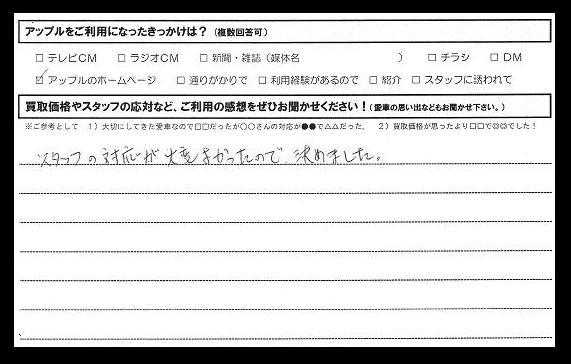 アップルをご利用になったきっかけは？（複数回答可）
□ テレビCM □ ラジオCM □ 新聞・雑誌（媒体名 ） □ チラシ □ DM
☑ アップルのホームページ □ 通りがかりで □ 利用経験があるので □ 紹介 □ スタッフに誘われて
買取価格やスタッフの応対など、ご利用の感想をぜひお聞かせください！（愛車の思い出などもお聞かせ下さい。）
※ご参考として 1）大切にしてきた愛車なので□□だったが○○さんの対応が●●で△△だった。 2）買取価格が思ったより□□で◎◎でした！
スタッフの対応が大変よかったので、決めました。